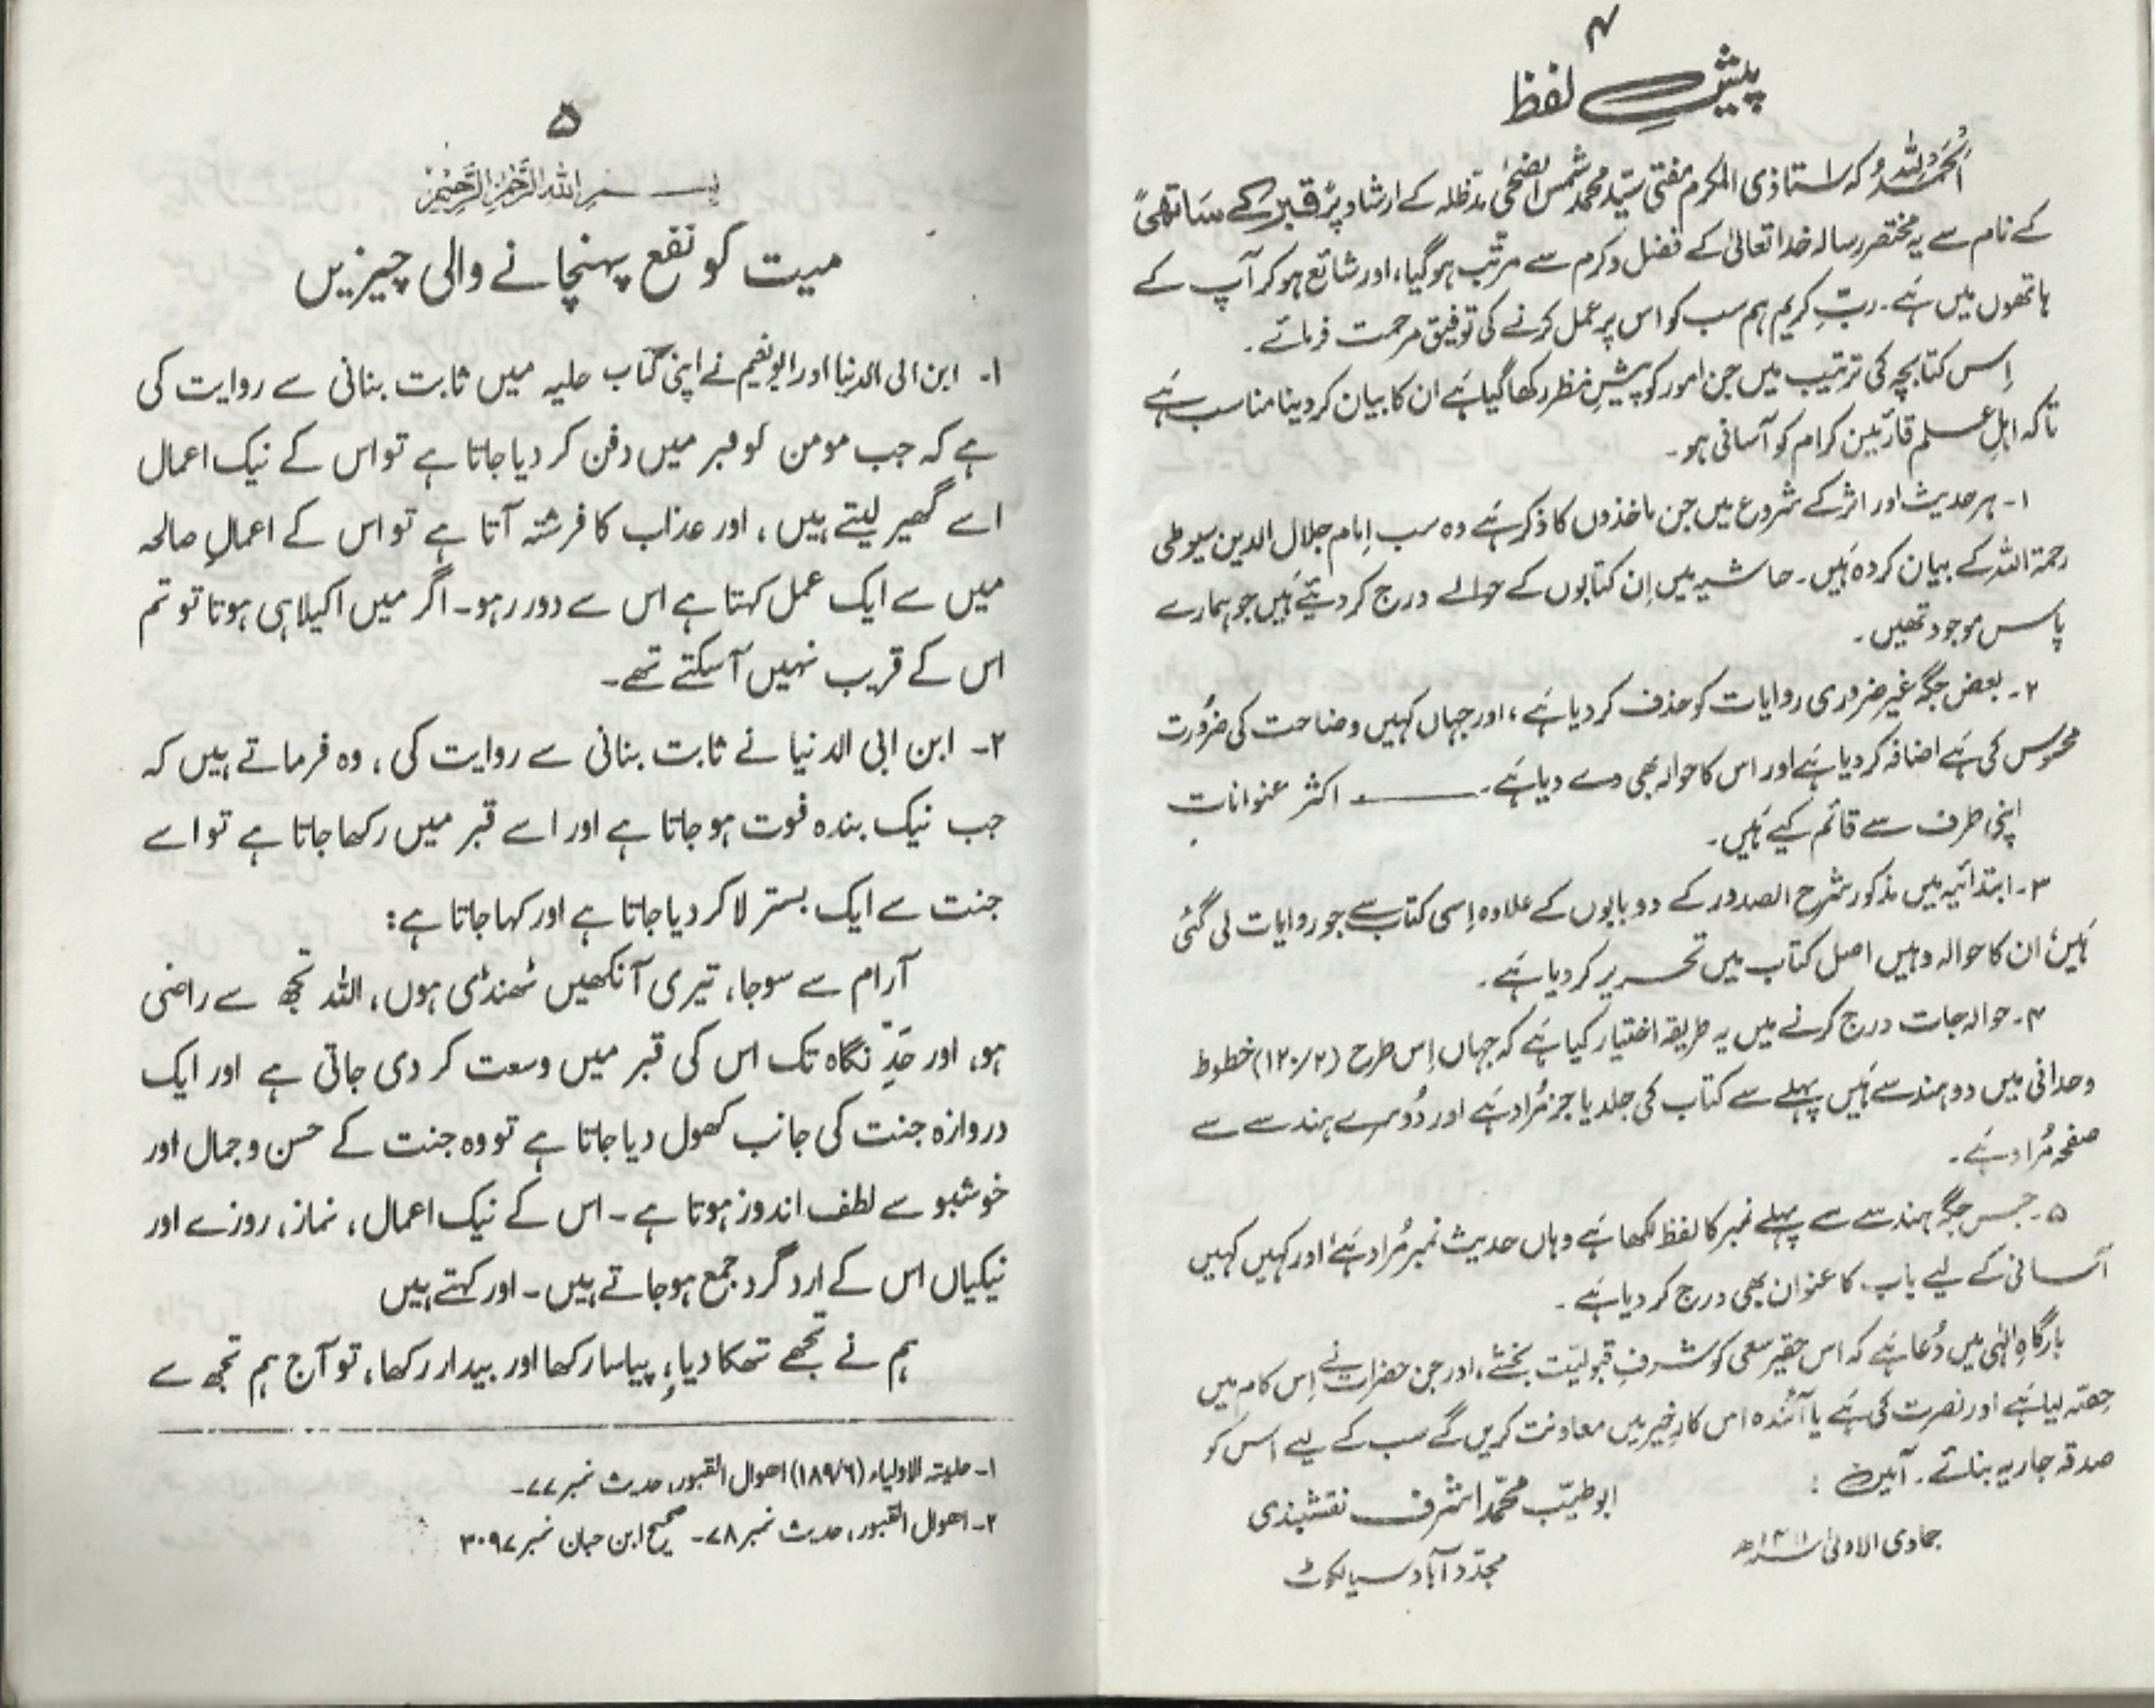 ۴
پیشِ لفظ
اَلْحَمْدُ لِلّٰہ کہ استاذی المکرم مفتی سیّد محمد شمس الضحیٰ مدظلہ کے ارشاد پر قبر کے ساتھی
کے نام سے یہ مختصر رسالہ خدا تعالیٰ کے فضل و کرم سے مرتّب ہو گیا، اور شائع ہو کر آپ کے
ہاتھوں میں ہَے۔ ربِّ کریم ہم سب کو اس پر عمل کرنے کی توفیق مرحمت فرمائے۔
اِس کتابچہ کی ترتیب میں جن امور کو پیشِ نظر رکھا گیا ہَے ان کا بیان کر دینا مناسب ہَے
تاکہ اہلِ علم قارئین کرام کو آسانی ہو۔
۱۔ ہر حدیث اور اثر کے شروع میں جن ماخذوں کا ذکر ہَے وہ سب اِمام جلال الدین سیوطی
رحمۃ اللہ کے بیان کردہ ہَیں۔ حاشیہ میں اِن کتابوں کے حوالے درج کر دیئے ہَیں جو ہمارے
پاس موجود تھیں۔
۲۔ بعض جگہ غیر ضروری روایات کو حذف کر دیا ہَے، اور جہاں کہیں وضاحت کی ضرُورت
محسوس کی ہَے اضافہ کر دیا ہَے اور اس کا حوالہ بھی دے دیا ہَے۔ ——— اکثر عنوانات
اپنی طرف سے قائم کیے ہَیں۔
۳۔ ابتدائیہ میں مذکور شرح الصدور کے دو بابوں کے علاوہ اِسی کتاب سے جو روایات لی گئی
ہَیں، ان کا حوالہ وہیں اصل کتاب میں تحریر کر دیا ہَے۔
۴۔ حوالہ جات درج کرنے میں یہ طریقہ اختیار کیا ہَے کہ جہاں اِس طرح (۱۲۰/۲) خطوط
وحدانی میں دو ہندسے ہَیں پہلے سے کتاب کی جلد یا جز مُراد ہَے اور دُوسرے ہندسے سے
صفحہ مُراد ہَے۔
۵۔ جس جگہ ہندسے سے پہلے نمبر کا لفظ لکھا ہَے وہاں حدیث نمبر مُراد ہَے، اور کہیں کہیں
آسانی کے لیے باب کا عنوان بھی درج کر دیا ہَے۔
بارگاہِ الٰہی میں دُعا ہَے کہ اس حقیر سعی کو شرفِ قبولیّت بخشے، اور جن حضرات نے اِس کام میں
حِصّہ لیا ہَے اور نصرت کی ہَے یا آئندہ اس کارِ خیر میں معاونت کریں گے سب کے لیے اس کو
صدقہ جاریہ بنائے۔ آمین :
ابو طیّب محمّد اشرف نقشبندی
جمادی الاولیٰ ۱۴۱۱ھ
مجدّد آباد سیالکوٹ
۵
بسم اللہ الرحمن الرحیم
میت کو نفع پہنچانے والی چیزیں
۱۔ ابن ابی الدنیا اور ابو نعیم نے اپنی کتاب حلیہ میں ثابت بنانی سے روایت کی
ہے کہ جب مومن کو قبر میں دفن کر دیا جاتا ہے تو اس کے نیک اعمال
اسے گھیر لیتے ہیں، اور عذاب کا فرشتہ آتا ہے تو اس کے اعمالِ صالحہ
میں سے ایک عمل کہتا ہے اس سے دور رہو۔ اگر میں اکیلا ہی ہوتا تو تم
اس کے قریب نہیں آ سکتے تھے۔
۲۔ ابن ابی الدنیا نے ثابت بنانی سے روایت کی، وہ فرماتے ہیں کہ
جب نیک بندہ فوت ہو جاتا ہے اور اسے قبر میں رکھا جاتا ہے تو اسے
جنت سے ایک بستر لا کر دیا جاتا ہے اور کہا جاتا ہے:
آرام سے سو جا، تیری آنکھیں ٹھنڈی ہوں، اللہ تجھ سے راضی
ہو، اور حَدِّ نگاہ تک اس کی قبر میں وسعت کر دی جاتی ہے اور ایک
دروازہ جنت کی جانب کھول دیا جاتا ہے تو وہ جنت کے حسن و جمال اور
خوشبو سے لطف اندوز ہوتا ہے۔ اس کے نیک اعمال، نماز، روزے اور
نیکیاں اس کے ارد گرد جمع ہو جاتے ہیں۔ اور کہتے ہیں
ہم نے تجھے تھکا دیا، پیاسا رکھا اور بیدار رکھا، تو آج ہم تجھ سے
۱۔ حلیتہ الاولیاء (۱۸۹/۶) احوال القبور، حدیث نمبر ۷۷۔
۲۔ احوال القبور، حدیث نمبر ۷۸۔ صحیح ابن حبان نمبر ۳۰۹۷